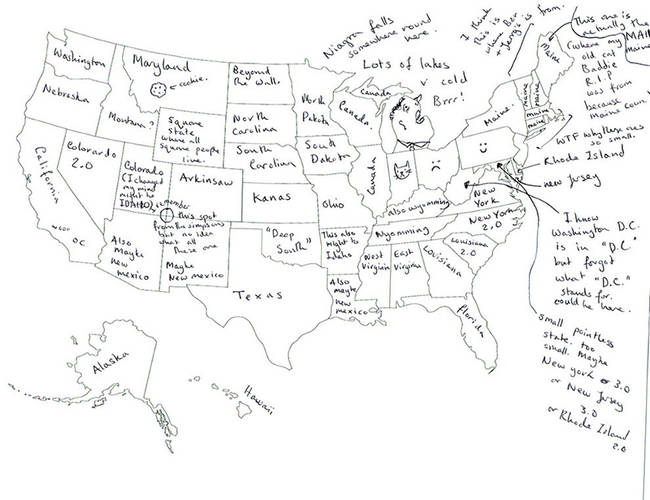 Washington
Nebraska
California
Maryland
cookie.
Montana?
Square
state
where all
square people
live.
Colorado
2.0
Colorado
(I changed
my mind
might be
IDAHO)
Arkinsaw
I remember
this spot
from the simpsons
but no idea
what all
these are
OC
Also
Maybe
new
mexico
Maybe
New mexico
Beyond
The Wall.
North
Carolina
South
Carolina
Kanas
"Deep
South"
Texas
North
Dakota
South
Dakota
Ohio
This also
might be
Idaho
Also
maybe
new
mexico
Niagra falls
somewhere round
here.
Lots of lakes
v cold
Brrr!
Canada
Canada.
Canada
also wyomming
Wyomming
West
Virginia
East
Virginia
Louisiana
Louisiana
2.0
Florida
New
York
New York
2.0
I think
this is
where Ben
+ Jerry's is from.
Maine.
Maine
maine
maine
maine
maine
This one is
actually the
MAIN
maine
(where my
old cat
Baddie
R.I.P
was from
because
maine coon
WTF why these ones
so small.
Rhode Island
new Jersey
I know
Washington D.C.
is in "D.C."
but forgot
what "D.C."
stands for.
could be here.
small pointless
state. too
small. Maybe
New york 3.0
or New Jersey
3.0
or Rhode Island
2.0
Alaska
Hawaii